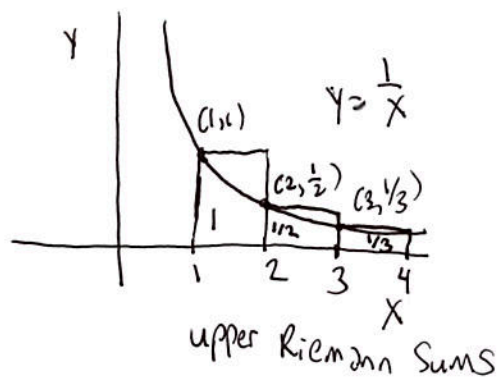 Y
y = 1/x
(1,1)
(2, 1/2)
(3, 1/3)
1
1/2
1/3
1 2 3 4
X
upper Riemann Sums